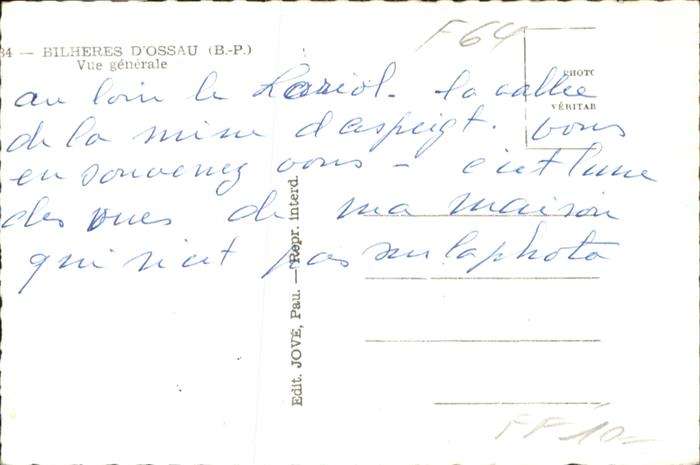 34 — BILHERES D'OSSAU (B.-P.)
Vue générale
F64
PHOTO
VÉRITAB
au loin le Loriol - la vallée
de la mine d'aspeigt. vous
en souvenez vous – c'est l'une
des vues de ma maison
qui n'est pas sur la photo
Edit. JOVÉ, Pau. — Repr. interd.
FF 10-